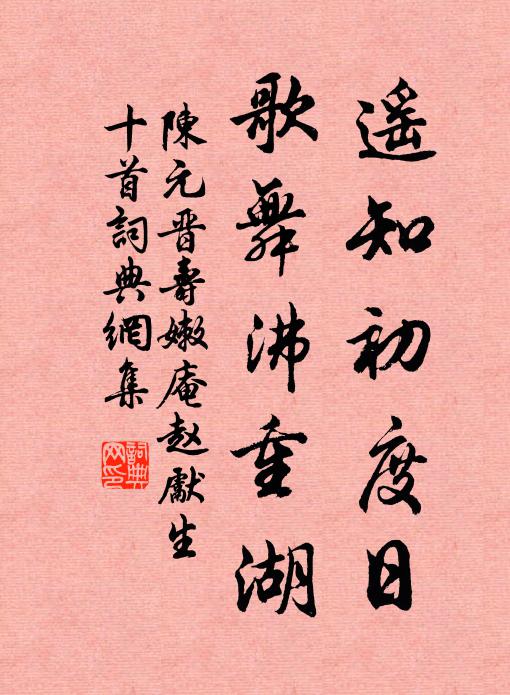 遥知初度日
歌舞沸重湖
陳元晋壽嫩庵赵獻生
十首詞典網集
詞典网印